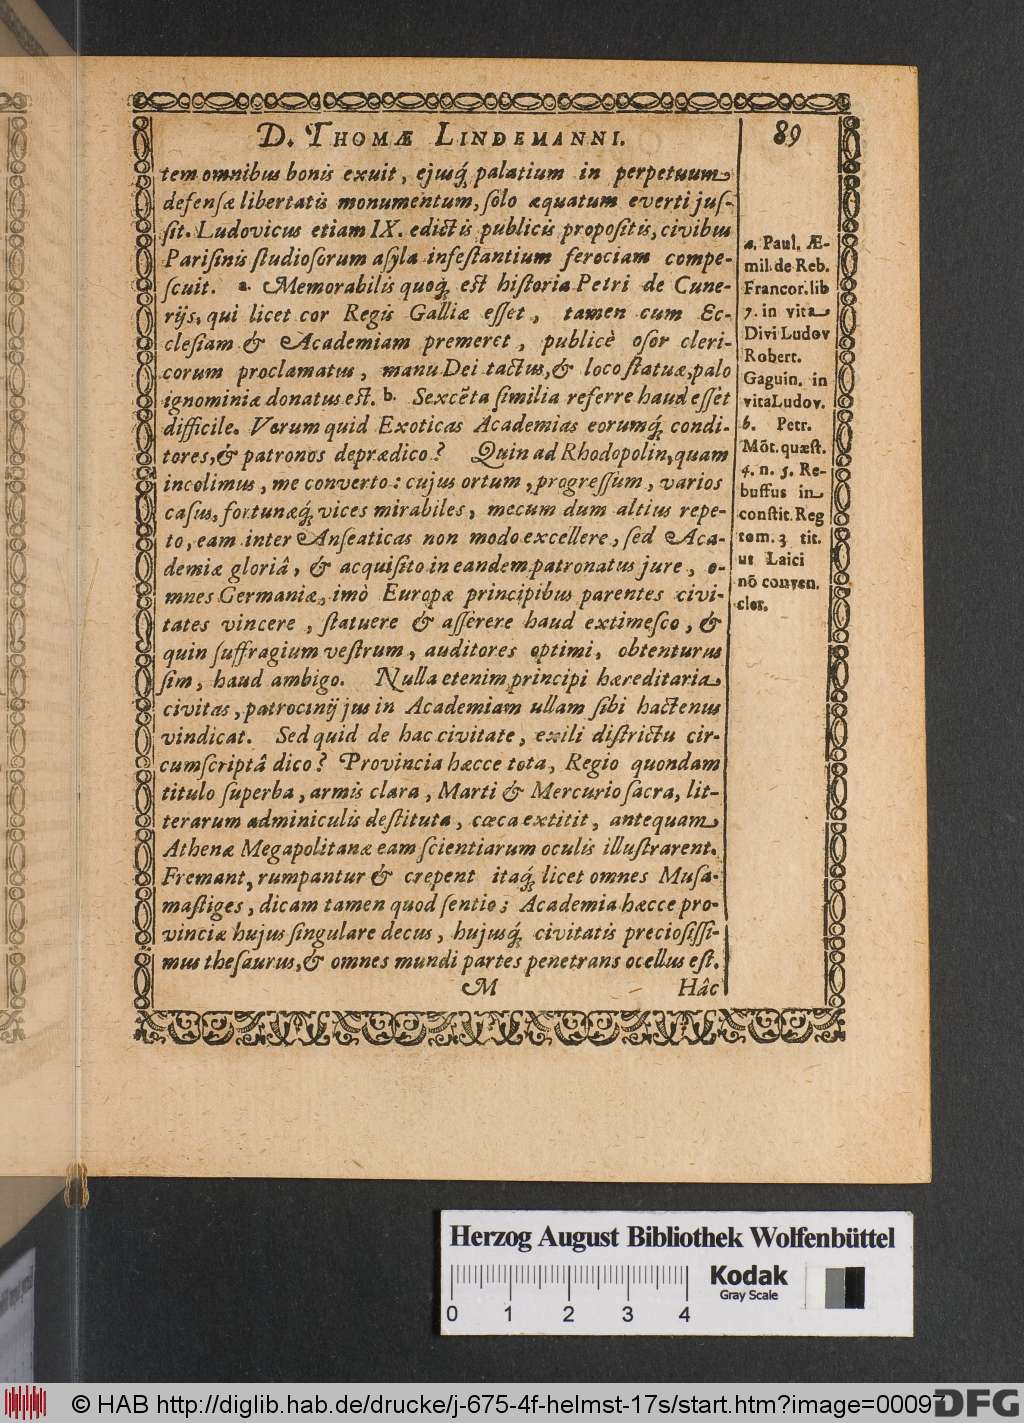 D. THOMÆ LINDEMANNI. 89
tem omnibus bonis exuit, ejusq́; palatium in perpetuum
defensæ libertatis monumentum, solo æquatum everti jus-
sit. Ludovicus etiam IX. edictis publicis propositis, civibus
Parisinis studiosorum asyla infestantium ferociam compe-
scuit. a. Memorabilis quoq́; est historia Petri de Cune-
rijs, qui licet cor Regis Galliæ esset, tamen cum Ec-
clesiam & Academiam premeret, publicè osor cleri-
corum proclamatus, manu Dei tactus, & loco statuæ, palo
ignominiæ donatus est. b. Sexcẽta similia referre haud esset
difficile. Verum quid Exoticas Academias eorumq́; condi-
tores, & patronos deprædico? Quin ad Rhodopolin, quam
incolimus, me converto: cujus ortum, progressum, varios
casus, fortunæq́; vices mirabiles, mecum dum altius repe-
to, eam inter Anseaticas non modo excellere, sed Aca-
demiæ gloriâ, & acquisito in eandem patronatus jure, o-
mnes Germaniæ, imò Europæ principibus parentes civi-
tates vincere, statuere & asserere haud extimesco, &
quin suffragium vestrum, auditores optimi, obtenturus
sim, haud ambigo. Nulla etenim principi hæreditaria
civitas, patrocinij jus in Academiam ullam sibi hactenus
vindicat. Sed quid de hac civitate, exili districtu cir-
cumscriptâ dico? Provincia hæcce tota, Regio quondam
titulo superba, armis clara, Marti & Mercurio sacra, lit-
terarum adminiculis destituta, cœca extitit, antequam
Athenæ Megapolitanæ eam scientiarum oculis illustrarent.
Fremant, rumpantur & crepent itaq́; licet omnes Musa-
mastiges, dicam tamen quod sentio; Academia hæcce pro-
vinciæ hujus singulare decus, hujusq́; civitatis preciosissi-
mus thesaurus, & omnes mundi partes penetrans ocellus est.
M Hâc
a. Paul. Æ-
mil. de Reb.
Francor. lib
7. in vita
Divi Ludov
Robert.
Gaguin. in
vita Ludov.
b. Petr.
Mõt. quæst.
4. n. 5. Re-
buffus in
constit. Reg
tom. 3 tit.
ut Laici
nõ conven.
cler.
Herzog August Bibliothek Wolfenbüttel
0 1 2 3 4
Kodak
Gray Scale
© HAB http://diglib.hab.de/drucke/j-675-4f-helmst-17s/start.htm?image=00097
DFG